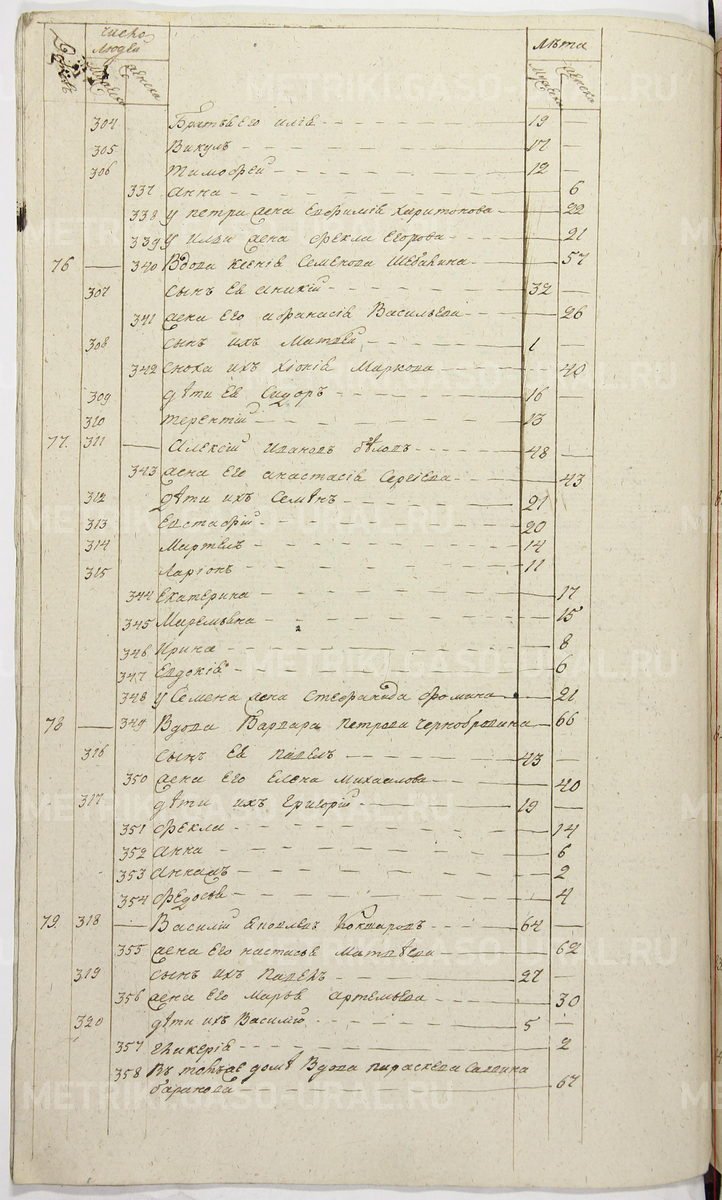 число людей лѣта
мужеска женска мужеска женска
304 Братья Его илія 19 —
305 Викулъ 17 —
306 тимофей 12 —
337 анна — 6
338 у петра жена Евфимія харитонова — 22
339 у Ильи жена фекла Егорова — 21
76 — 340 Вдова ксенія Семенова — 57
307 сынъ Ея аникій 32 —
341 жена Его афанасія Васильева — 26
308 сынъ ихъ Матвей 1 —
342 сноха ихъ хіонія Маркова — 40
309 дѣти Ея Сидоръ 16 —
310 терентій 13
77. 311 — Алексій Ивановъ бѣловъ 48 —
343 жена Его анастасія Сергіева — 43
312 дѣти ихъ Семѣнъ 21
313 Евстафій 20
314 Мартемъ 14
315 Ларіонъ 11
344 Екатерина — 17
345 Маремьяна — 15
346 Ирина — 8
347 Евдокія — 6
348 у Семена жена Стефанида фомина — 21
78 — 349 Вдова Варвара петрова чернобровина — 66
316 сынъ Ея павелъ 43 —
350 жена Его Елена михаилова — 40
317 дѣти ихъ григорій 19 —
351 фекла — 14
352 анна — 6
353 анна — 2
354 федосья — 4
79. 318 — Василій 64 —
355 жена Его настасья Матвѣева — 62
319 сынъ ихъ павелъ 27 —
356 жена Его Марья артемьева — 30
320 дѣти ихъ Василій 5 —
357 гликерія — 2
358 Въ томъже домѣ Вдова параскева Саввина
баранова — 67
METRIKI.GASO-URAL.RU